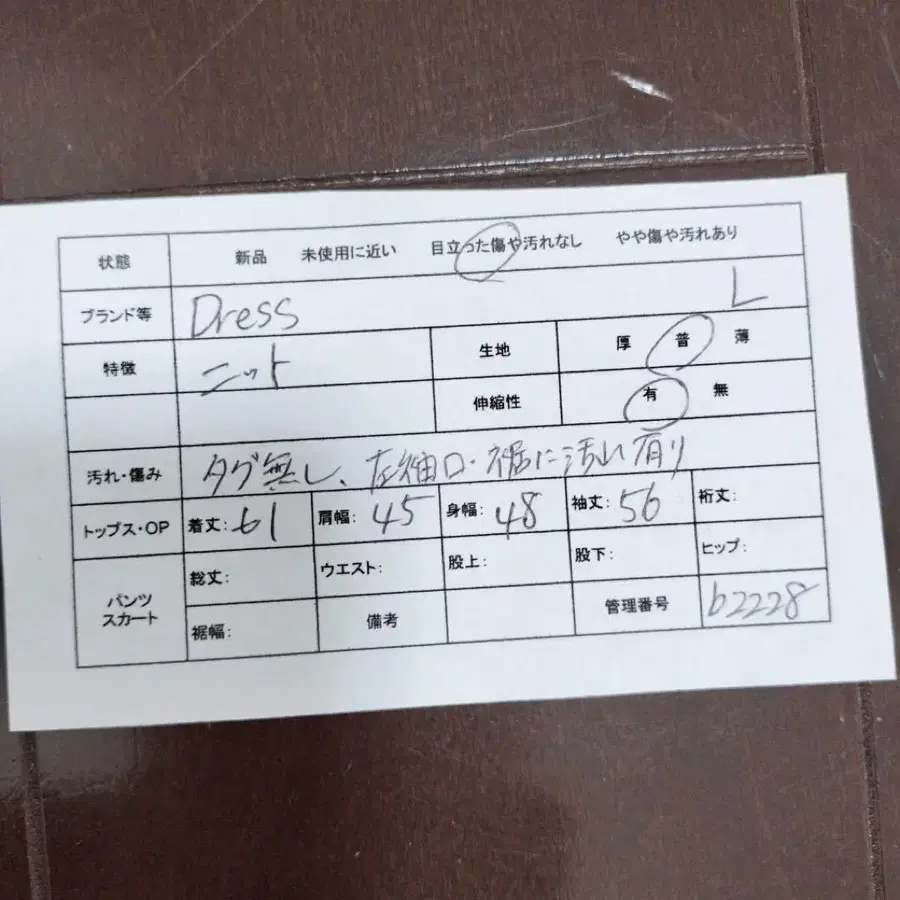 状態 新品 未使用に近い 目立った傷や汚れなし やや傷や汚れあり
ブランド等 Dress L
特徴 ニット 生地 厚 普 薄
伸縮性 有 無
汚れ・傷み タグ無し、左袖口・裾に汚れ有り
トップス・OP 着丈:61 肩幅:45 身幅:48 袖丈:56 裄丈:
パンツ スカート 総丈: ウエスト: 股上: 股下: ヒップ:
裾幅: 備考 管理番号 b2228